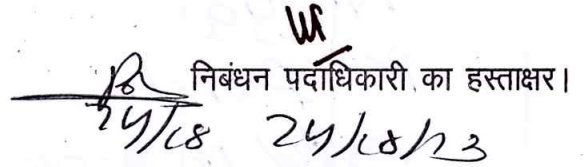 निबंधन पदाधिकारी का हस्ताक्षर।
24/18 24/18/23